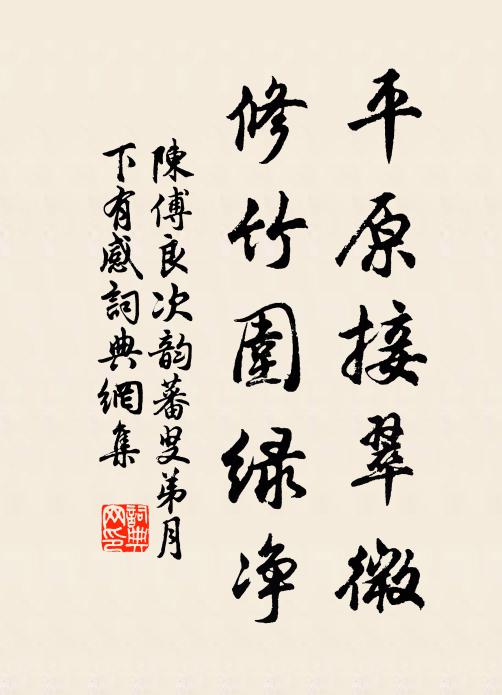 平原接翠微
修竹圍绿净
陳傅良次韵蕃叟弟月
下有感詞典網集
詞典网印